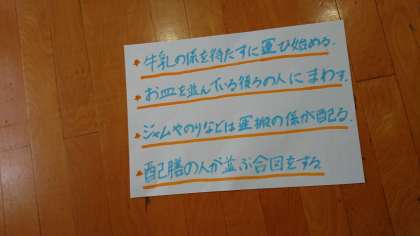 ・牛乳の係を待たずに運び始める.
・お皿を並んでいる後ろの人にまわす.
・ジャムやのりなどは運搬の係が配る.
・配膳の人が並ぶ合図をする